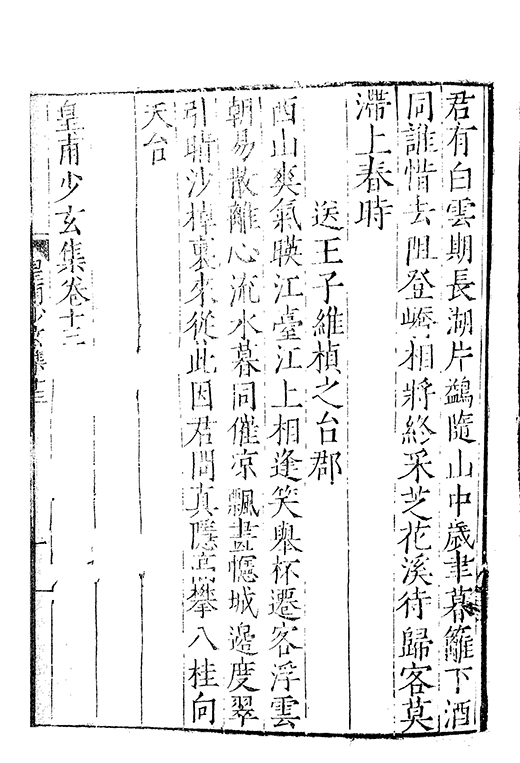 君有白雲期長湖片鷁隨山中歲聿暮籬下酒
同誰惜去阻登嶠相將終采芝花溪待歸客莫
滯上春時
送王子維楨之台郡
西山爽氣暎江臺江上相逢笑舉杯遷客浮雲
朝易散離心流水暮同催凉飄畫幰城邊度翠
引晴沙棹裏來從此因君問真隱高攀八桂向
天台
皇甫少玄集卷十三